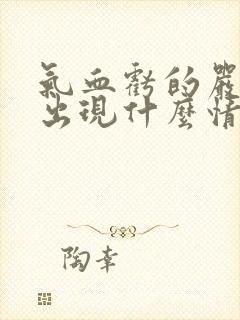 氣血虧的嚴
出現什麼情
陶幸